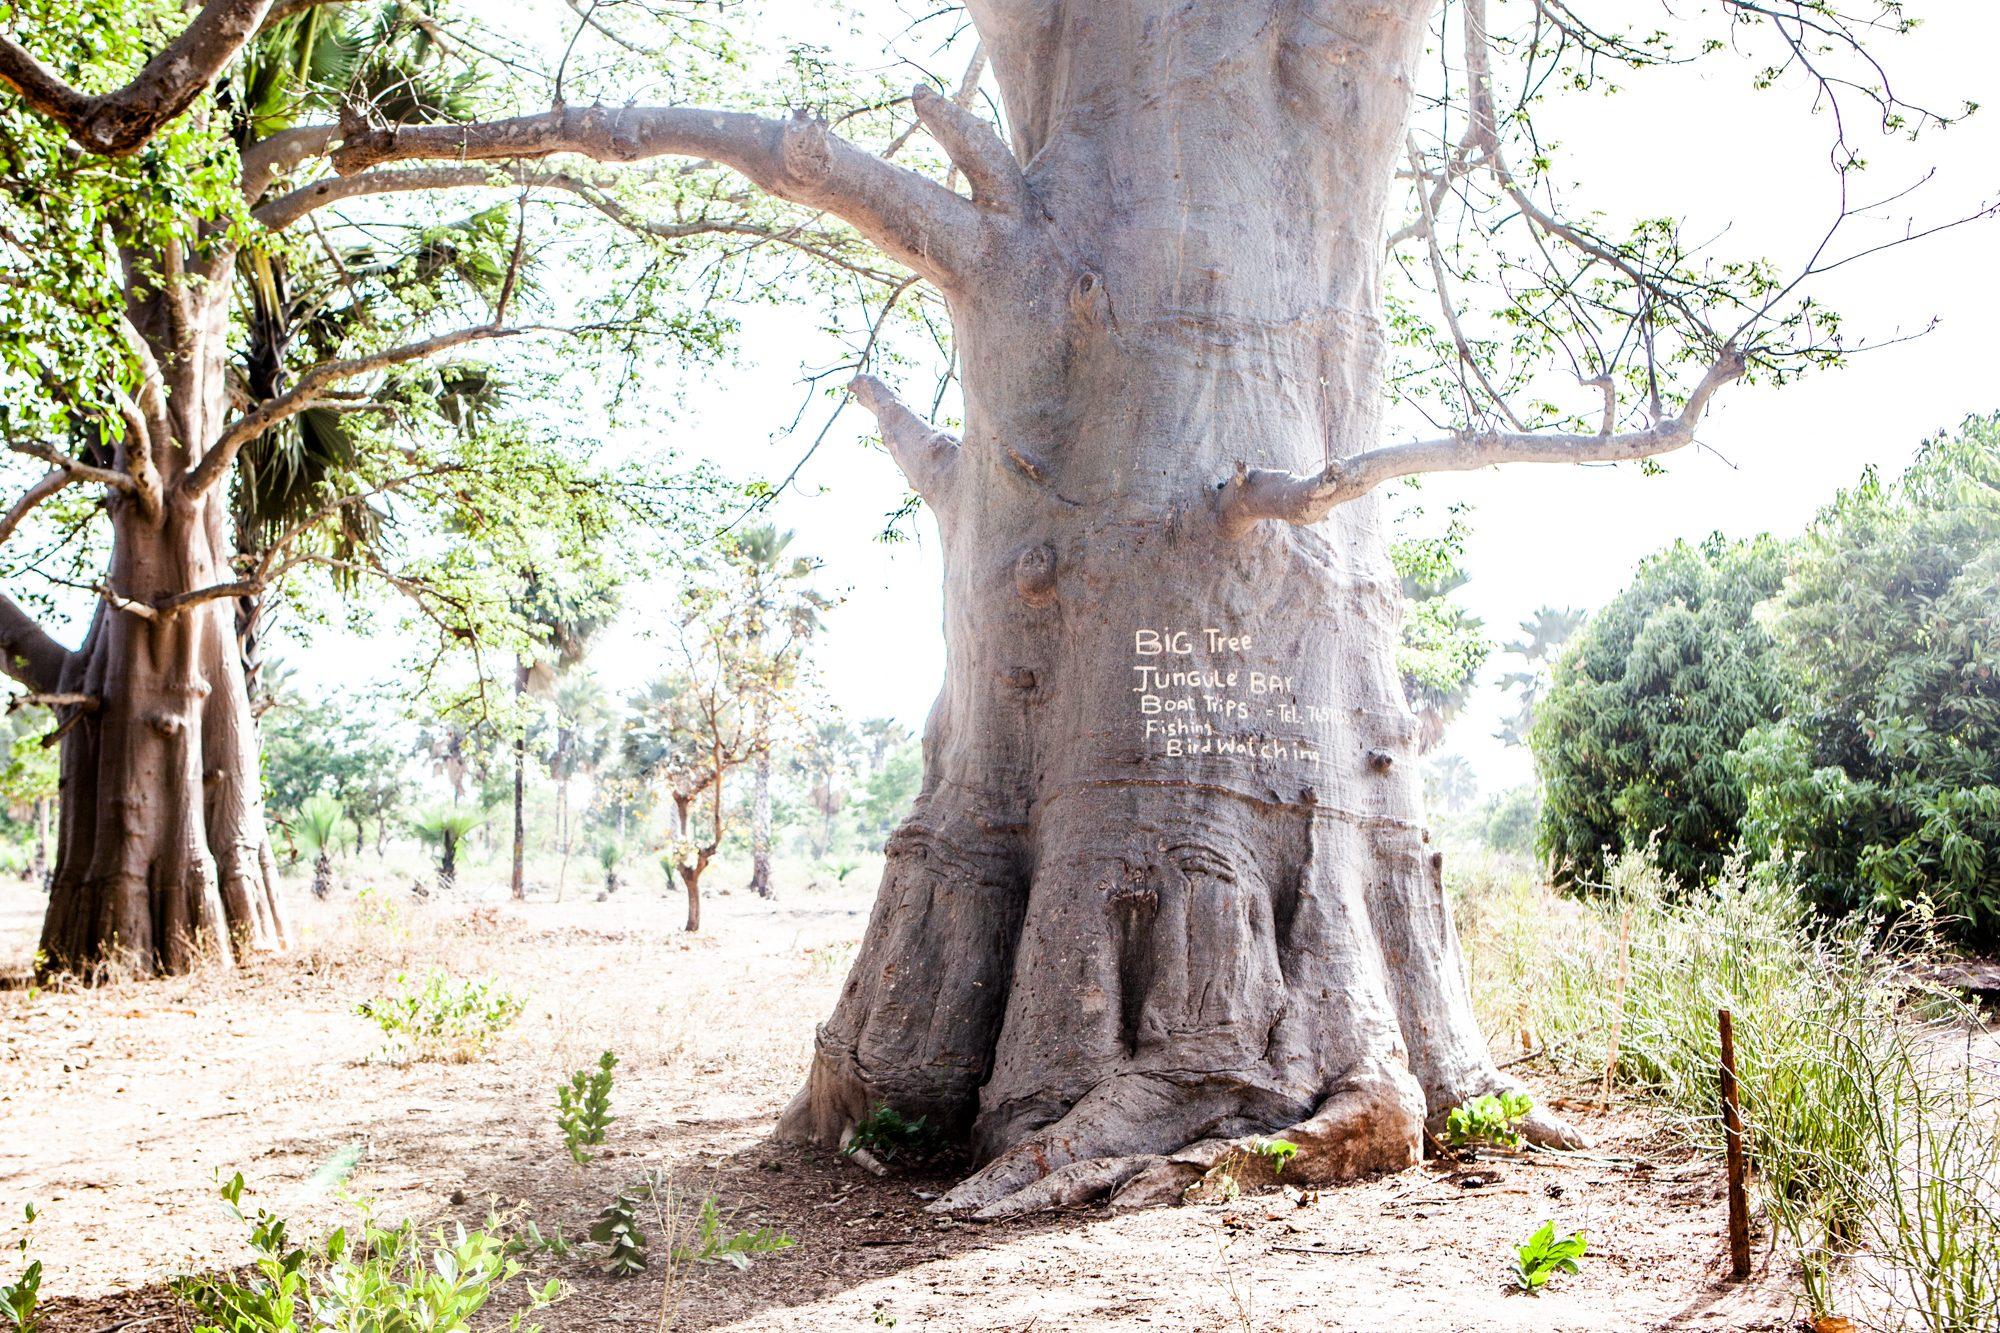 BiG Tree
JUNGULE BAR
Boat Trips = Tel.
Fishing
Bird Watching